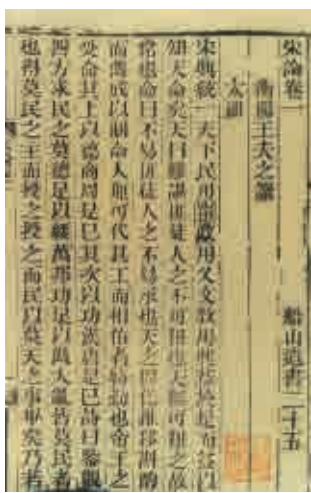 宋論卷一 船山遺書二十五
衡陽王夫之譔
太祖
宋興統一天下民用寧政用乂文教用興蓋於是而益以
知天命矣天曰難諶匪徒人之不可狃也天無可狃之故
常也命曰不易匪徒人之不易承也天之因化推移斟酌
而曲成以制命人無可代其工而相佑者特勤也帝王之
受命其上以德商周是已其次以功漢唐是已詩曰鑒觀
四方求民之莫德足以綏萬邦功足以戡大亂皆莫民者
也得莫民之主而授之授之而民以莫天之事畢矣乃若